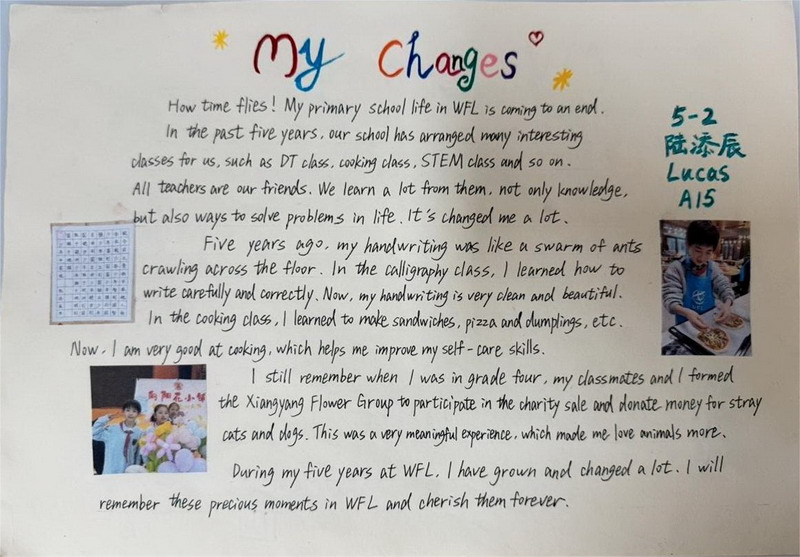 My Changes
How time flies! My primary school life in WFL is coming to an end.
In the past five years, our school has arranged many interesting
classes for us, such as DT class, cooking class, STEM class and so on.
All teachers are our friends. We learn a lot from them, not only knowledge,
but also ways to solve problems in life. It's changed me a lot.
Five years ago, my handwriting was like a swarm of ants
crawling across the floor. In the calligraphy class, I learned how to
write carefully and correctly. Now, my handwriting is very clean and beautiful.
In the cooking class, I learned to make sandwiches, pizza and dumplings, etc.
Now, I am very good at cooking, which helps me improve my self-care skills.
I still remember when I was in grade four, my classmates and I formed
the Xiangyang Flower Group to participate in the charity sale and donate money for stray
cats and dogs. This was a very meaningful experience, which made me love animals more.
During my five years at WFL, I have grown and changed a lot. I will
remember these precious moments in WFL and cherish them forever.
5-2
陆添辰
Lucas
A15
向阳花小